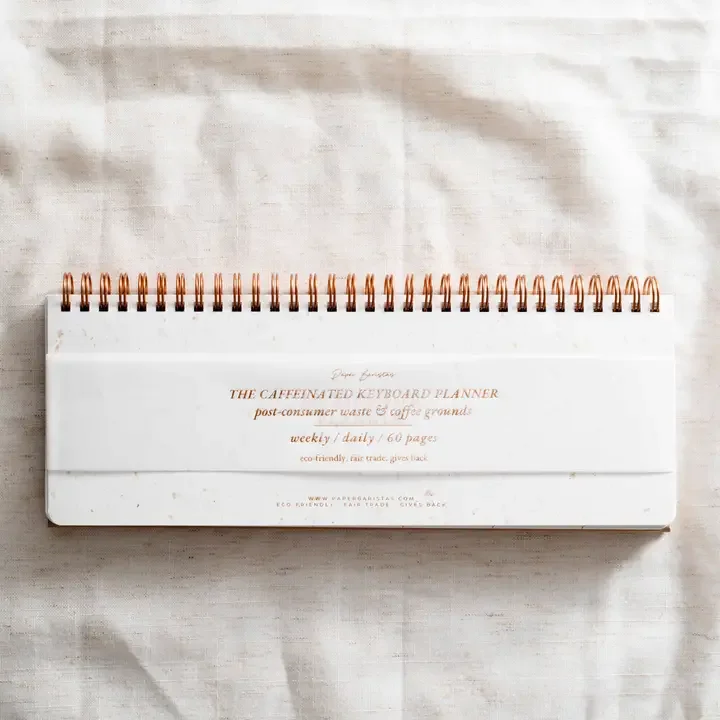 Paper Baristas
THE CAFFEINATED KEYBOARD PLANNER
post-consumer waste & coffee grounds
weekly / daily / 60 pages
eco-friendly. fair trade. gives back
WWW.PAPERBARISTAS.COM
ECO FRIENDLY FAIR TRADE GIVES BACK